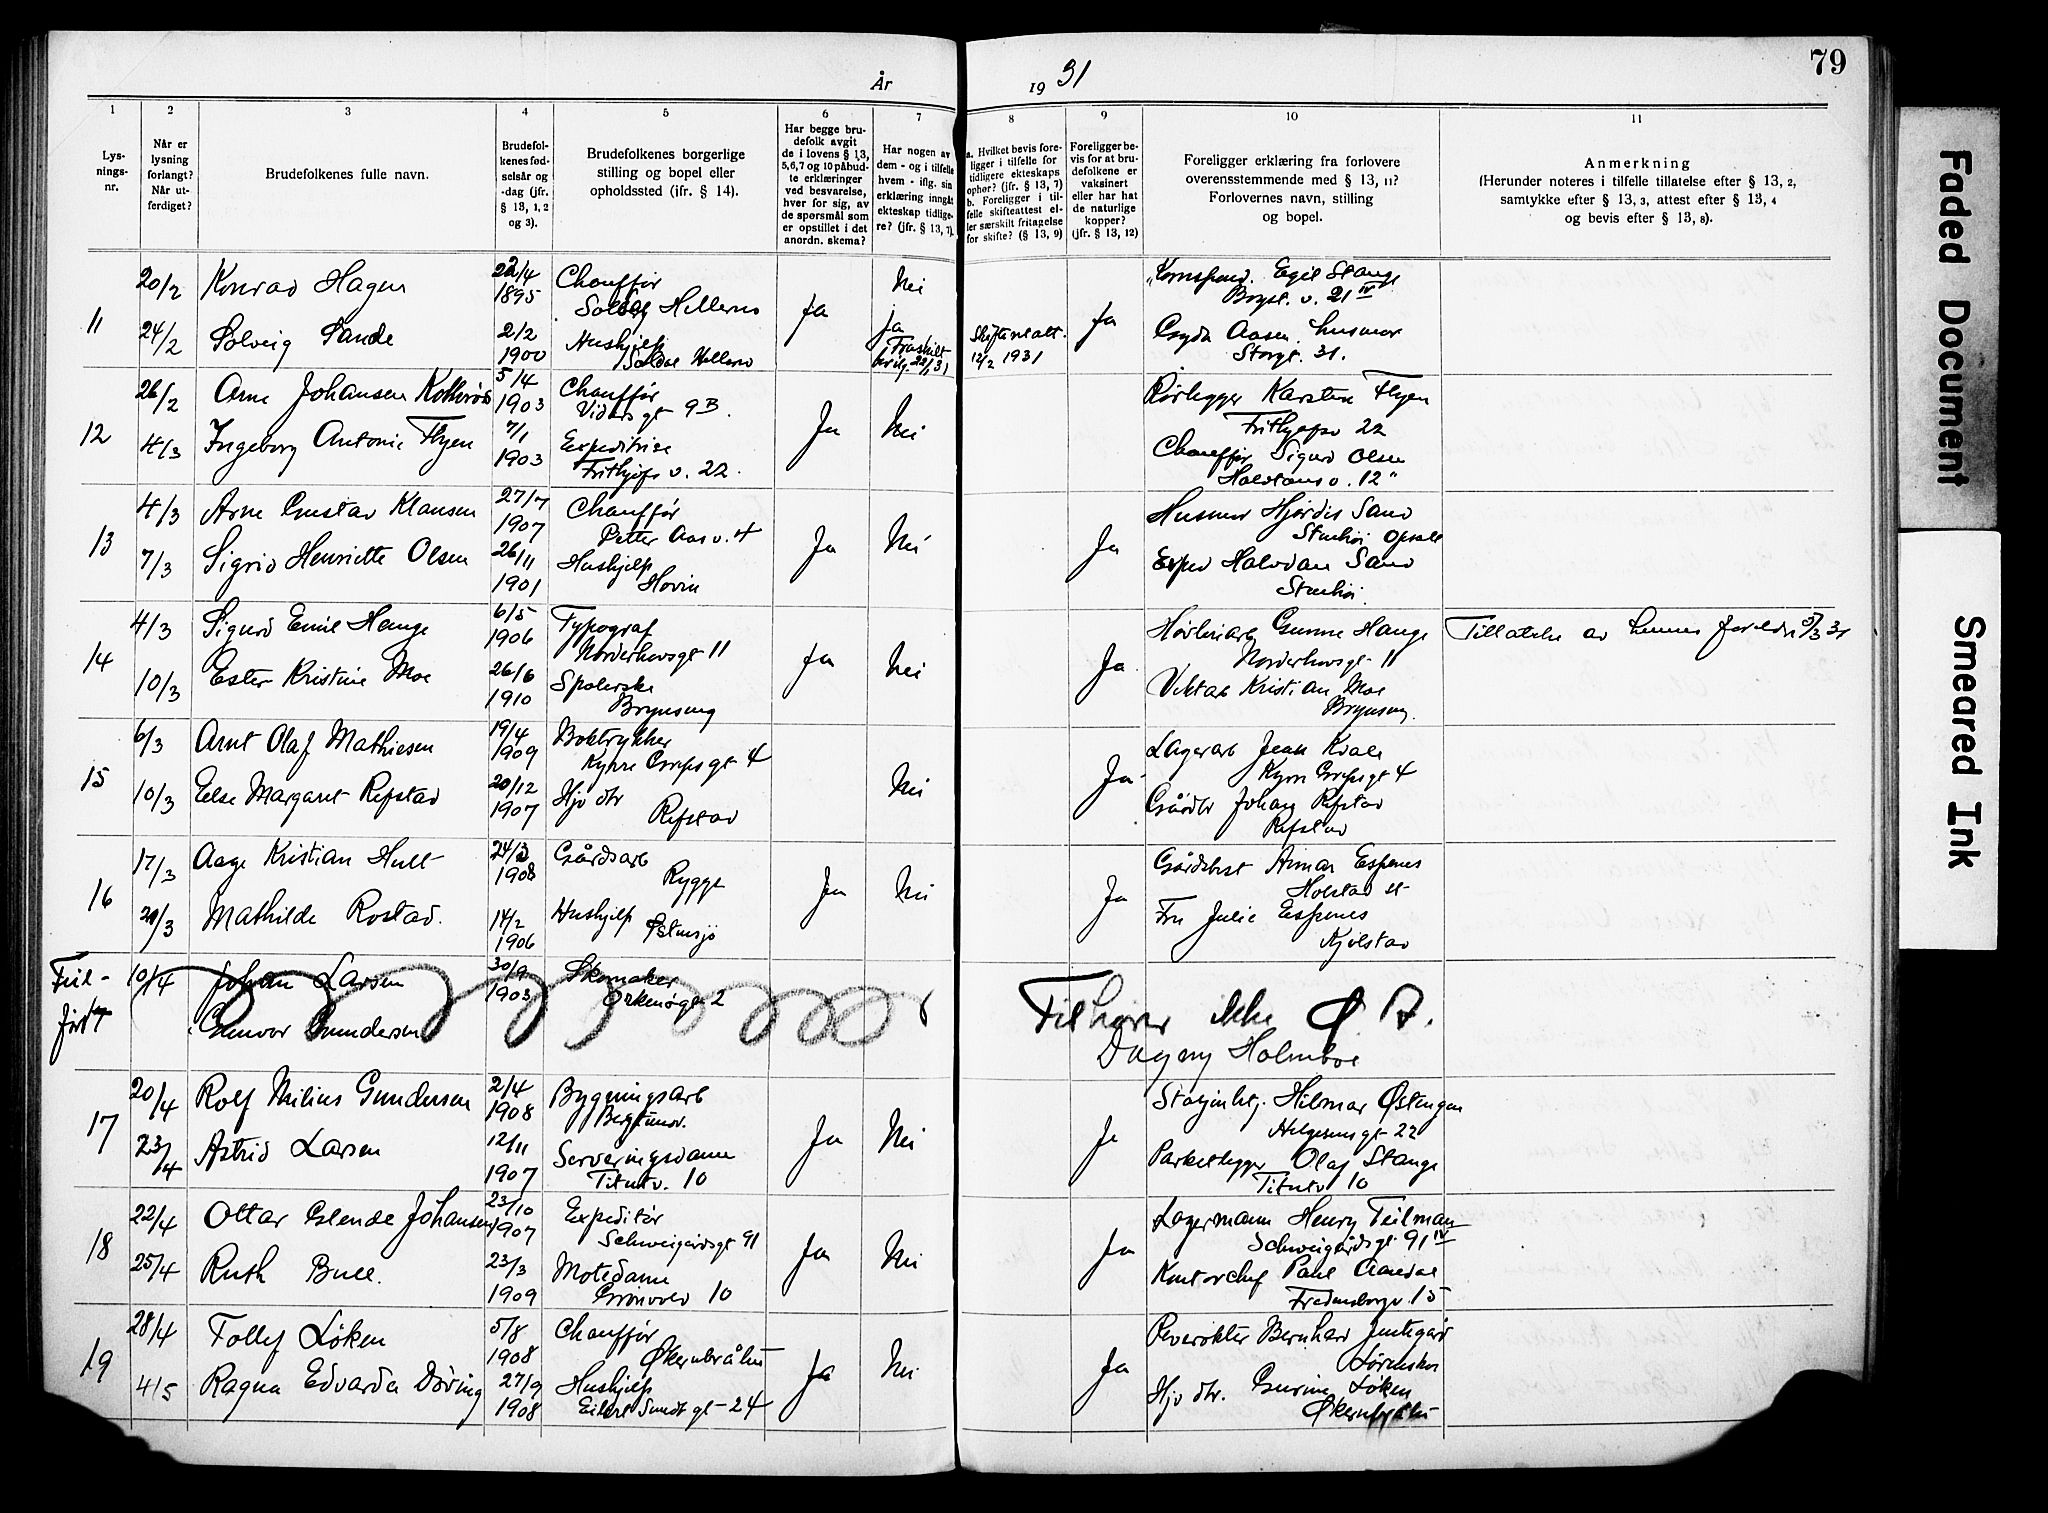 79
År 1931
1 2 3 4 5 6 7 8 9 10 11
Lysningsnr.
Når er lysning forlangt? Når utferdiget?
Brudefolkenes fulle navn.
Brudefolkenes fødselsår og -dag (jfr. § 13, 1, 2 og 3).
Brudefolkenes borgerlige stilling og bopel eller opholdssted (ifr. § 14).
Har begge brudefolk avgit de i lovens § 13, 5,6,7 og 10 påbudte erklæringer ved besvarelse, hver for sig, av de spørsmål som er opstillet i det anordn. skema?
Har nogen av dem - og i tilfelle hvem - iflg. sin erklæring inngått ekteskap tidligere? (jfr. § 13, 7).
a. Hvilket bevis foreligger i tilfelle for tidligere ekteskaps ophør? (jfr. § 13, 7)
b. Foreligger i tilfelle skifteattest eller særskilt fritagelse for skifte? (§ 13, 9)
Foreligger bevis for at brudefolkene er vaksinert eller har hat de naturlige kopper? (jfr. § 13, 12)
Foreligger erklæring fra forlovere overensstemmende med § 13, 11?
Forlovernes navn, stilling og bopel.
Anmerkning
(Herunder noteres i tilfelle tillatelse efter § 13, 2, samtykke efter § 13, 3, attest efter § 13, 4 og bevis efter § 13, 8).
11
20/2 Konrad Hagen 22/4 1895 Chauffør Hellerud Nei Egil Stange
24/2 Solveig Sande 2/2 1900 Hushjelp Ja ja 12/2 1931 Ja Gyda Aasen husmor
Storgt. 31.
12
26/2 Arne Johansen 5/4 1903 Chauffør Vidars gt 9B. Rørlegger Karsten Flyen
Frithjofsv 22
4/3 Ingeborg Antonie Flyen 7/1 1903 Expeditrise Frithjofs v. 22. Ja Nei Chauffør Sigurd Olsen
Halvdans v. 12
13
4/3 Arne Gustav Klausen 27/7 1907 Chauffør Petter Aas v. 4 Husmor Hjørdis Sand
7/3 Sigrid Henriette Olsen 26/11 1901 Hushjelp Hovin Ja Nei Ja Exped Halvdan Sand
14
4/3 Sigurd Emil Hauge 6/5 1906 Typograf Norderhovsgt 11 Gunne Hauge
Norderhovsgt 11
Tillatelse av hennes foreldre 5/3 31
10/3 Ester Kristine Moe 26/6 1910 Spolerske Brynseng Ja Nei Ja Viktor Kristian Moe
Brynseng
15
6/3 Arnt Olaf Mathiesen 19/4 1909 Boktrykker Kyhre Greps gt 4 Lagerarb Jean Kvale
10/3 Else Margaret Refstad 20/12 1907 Hjv dtr Refstad Nei Ja Johan Refstad
Refstad
16
17/3 Aage Kristian Hull 24/3 1908 Gårdsarb Rygge Gårdsbest Espenes
Holstad st
20/3 Mathilde Rostad. 14/2 1906 Hushjelp Østensjø Ja Nei Ja Fru Julie Espenes
Kjølstad
Feil-
ført
10/4 Johan Larsen 30/9 1903 Skomaker Orknøgt 2
Gunvor Gundersen
Tilhører ikke Ø. A.
Dagny Holmboe
17
20/4 Rolf Milius Gundersen 2/4 1908 Bygningsarb Hilmar Østengen
Helgesensgt 22
23/4 Astrid Larsen 12/11 1907 Serveringsdame Titutv. 10 Ja Nei Ja Parketlegger Olaf Stange
Titutv 10
18
22/4 Ottar Johansen 23/10 1907 Expeditør Schweigårdsgt 91 Lagermann Henry Teilman
Schweigårdsgt 91 IV
25/4 Ruth Bull. 23/3 1909 Motedame Grønvold 10 Ja Nei Ja Kontorchef Paul
Fredensborgv. 15
19
28/4 Tollef Løken 5/8 1908 Chauffør Økernbråten Bernhard
Lørenskog
4/5 Ragna Edvarda Døving 27/9 1908 Hushjelp Eilert Sundt gt 24 Ja Nei Ja Hjv dtr. Gurine Løken
Økernbråten
Faded Document
Smeared Ink